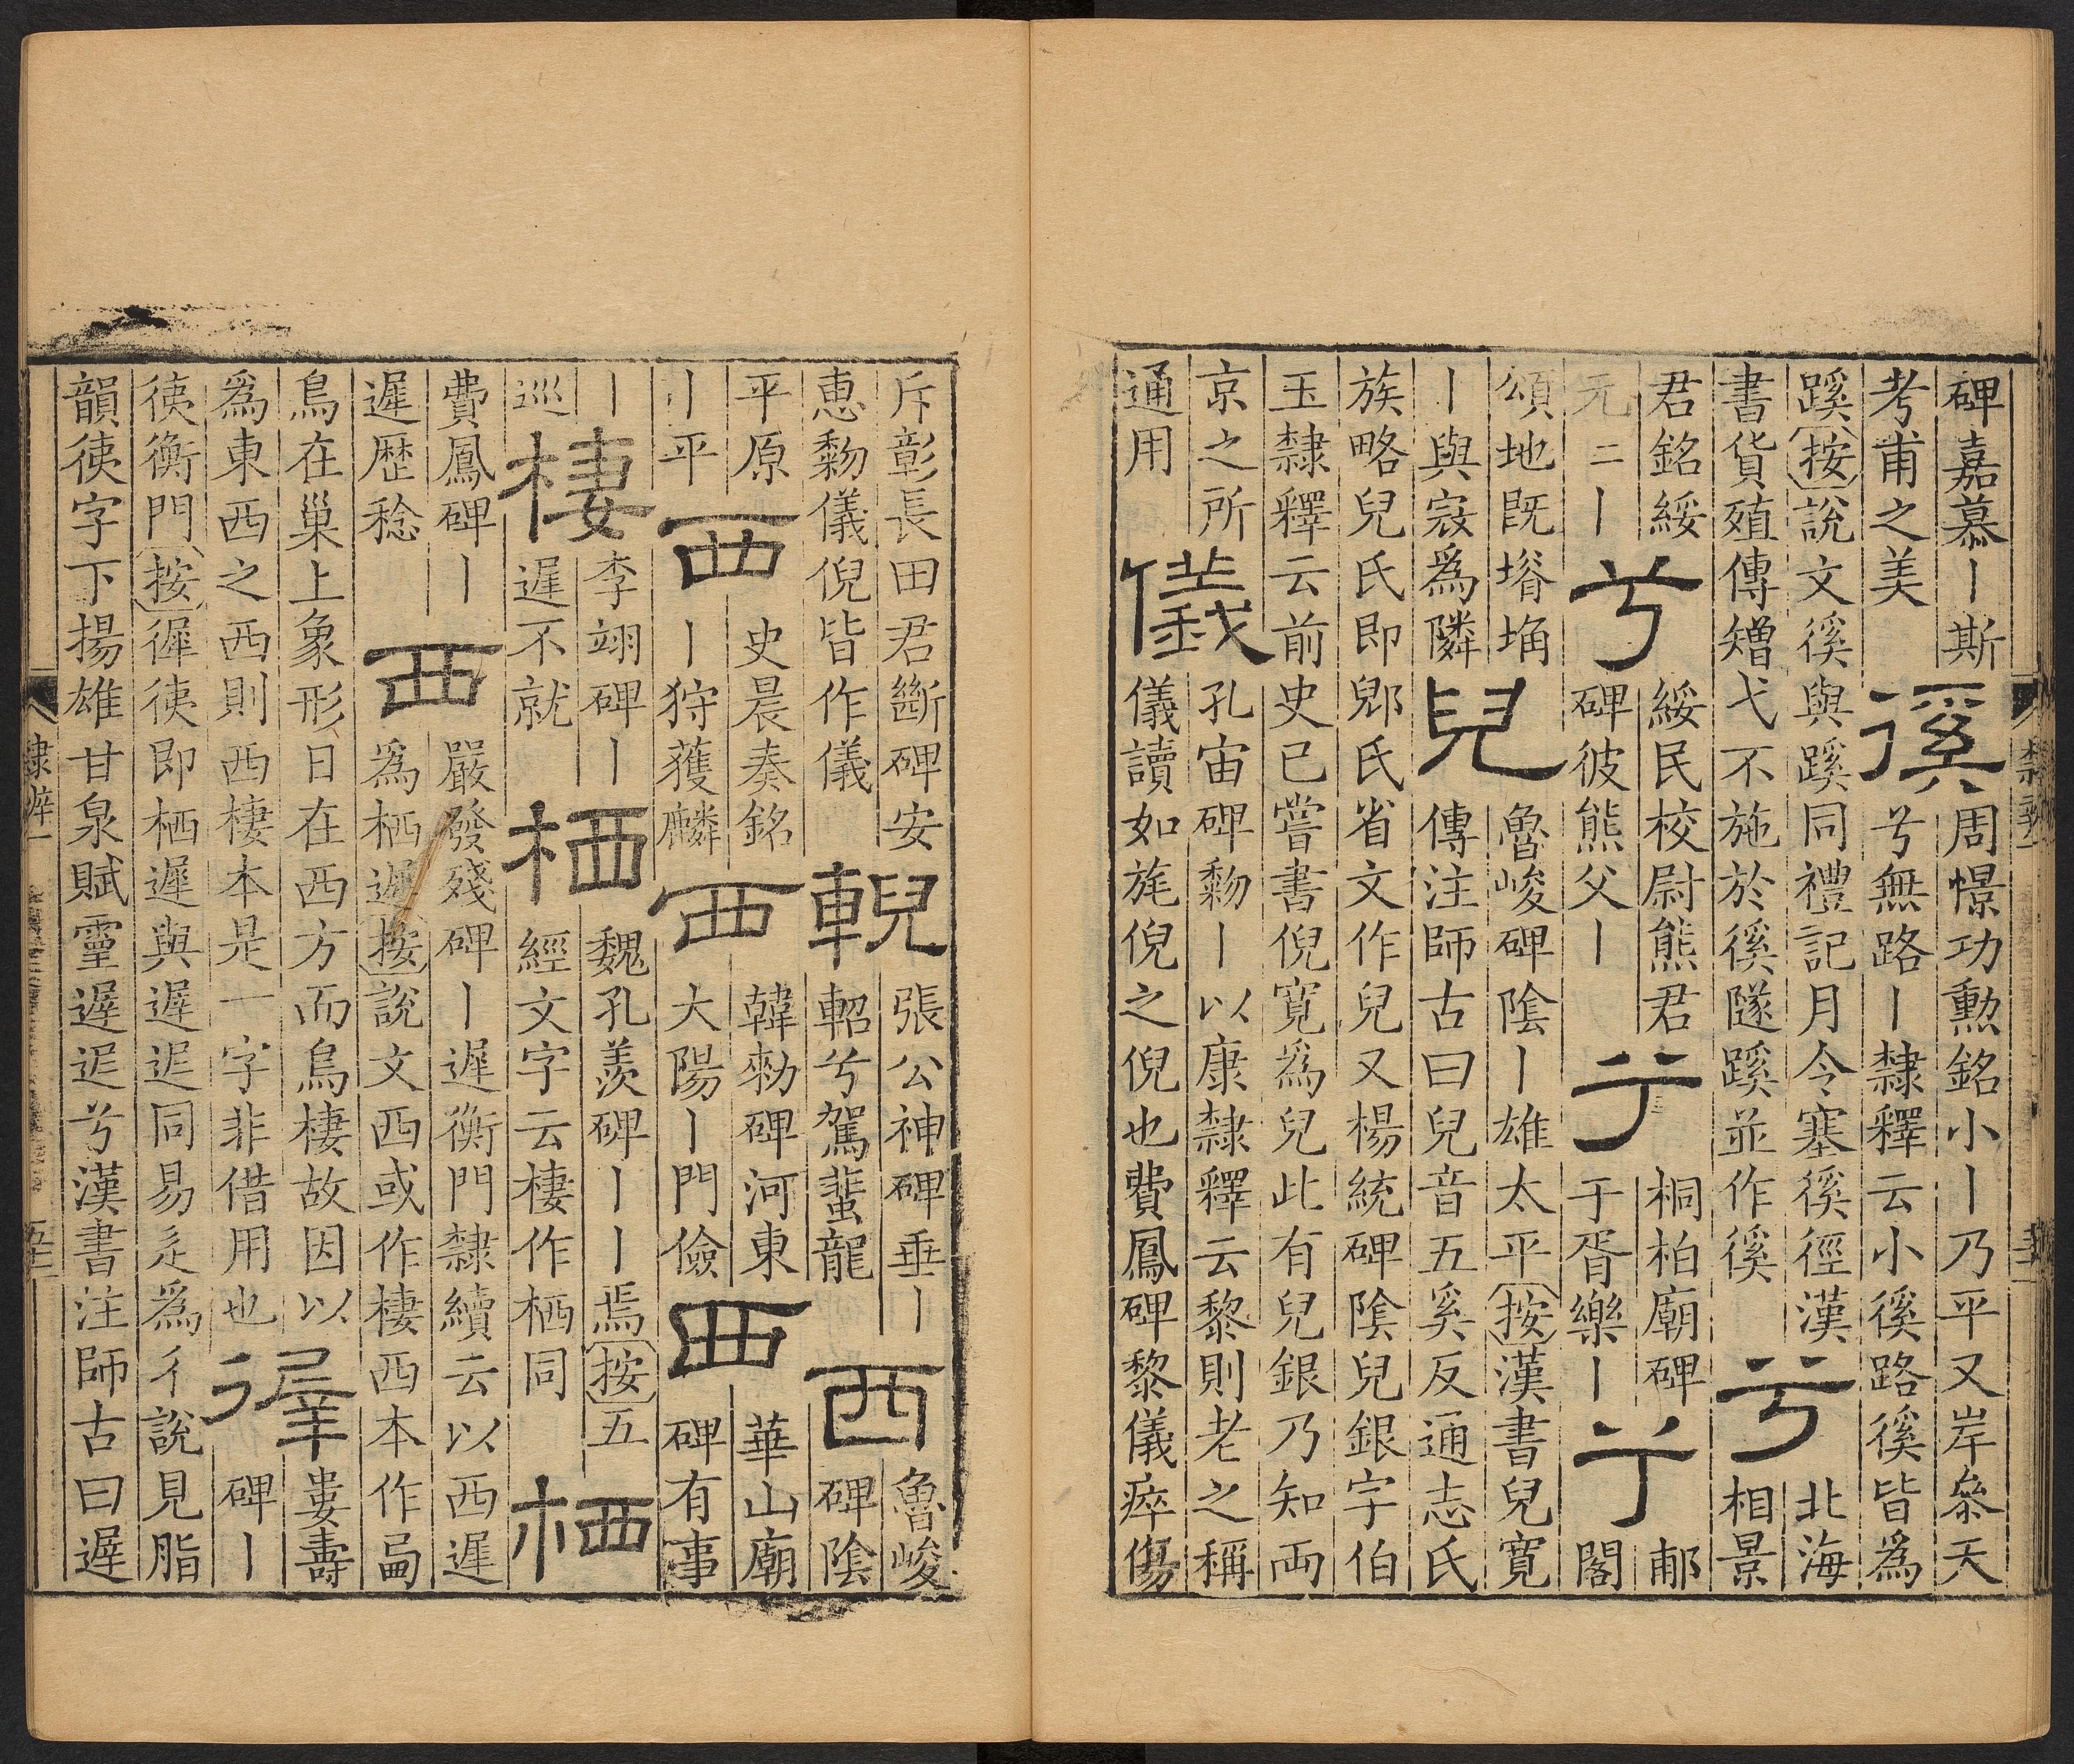 碑嘉慕丨斯
考甫之美
徯
周憬功勲銘小丨乃平又岸叅天
兮無路丨隸釋云小徯路徯皆爲
蹊按說文徯與蹊同禮記月令塞徯徑漢
書貨殖傳矰弋不施於徯隧蹊並作徯
兮
北海
相景
君銘綏
元二丨
兮
綏民校尉熊君
碑彼熊父丨
兮
桐柏廟碑
于胥樂丨
兮
郙
閣
頌地既塉埆
丨與寇爲隣
兒
魯峻碑陰丨雄太平按漢書兒寬
傳注師古曰兒音五奚反通志氏
族略兒氏即郳氏省文作兒又楊統碑陰兒銀字伯
玉隸釋云前史已嘗書倪寬爲兒此有兒銀乃知両
京之所
通用
儀
孔宙碑黎丨以康隸釋云黎則老之稱
儀讀如旄倪之倪也費鳳碑黎儀瘁傷
斥彰長田君斷碑安
恵黎儀倪皆作儀
輗
張公神碑垂丨
軺兮駕蜚龍
西
魯峻
碑陰
平原
丨平
西
史晨奏銘
丨狩獲麟
西
韓勑碑河東
大陽丨門儉
西
華山廟
碑有事
丨
巡
棲
李翊碑丨
遲不就
栖
魏孔羨碑丨丨焉按五
經文字云棲作栖同
栖
費鳳碑丨
遲歴稔
西
嚴發殘碑丨遲衡門隸續云以西遲
爲栖遲按說文西或作棲西本作㢴
鳥在巢上象形日在西方而鳥棲故因以
爲東西之西則西棲本是一字非借用也
徲
婁壽
碑丨
徚衡門按徲徚即栖遲與遲迡同易辵爲彳說見脂
韻徚字下揚雄甘泉賦靈遲迡兮漢書注師古曰遲
隸辨一